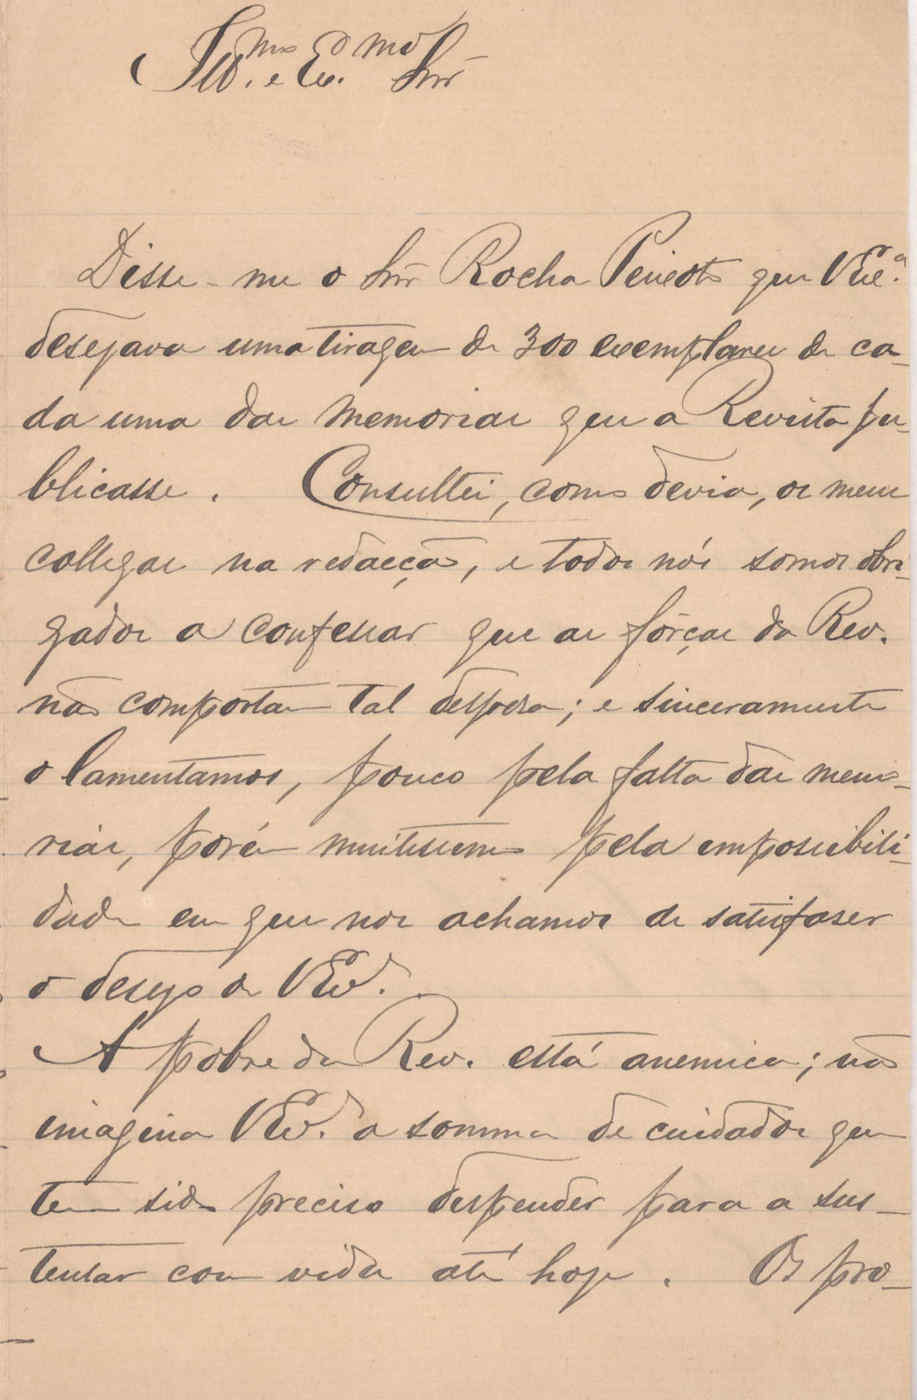 Ill.mo e Ex.mo Snr
Disse-me o Snr Rocha Peixoto que VExc.a
desejava uma tiragem de 300 exemplares de ca-
da uma das memorias que a Revista pu-
blicasse. Consultei, como devia, os meus
collegas na redacção, e todos nós somos obri-
gados a confessar que as fôrças da Rev.
não comportam tal despesa; e sinceramente
o lamentamos, pouco pela falta das memo-
rias, porém muitissimo pela impossibili-
dade em que nos achamos de satisfaser
o desejo de VEx.a.
A pobre da Rev. está anemica; não
imagina VEx.a a somma de cuidados que
tem sido preciso despender para a sus-
tentar com vida até hoje. Os pro-